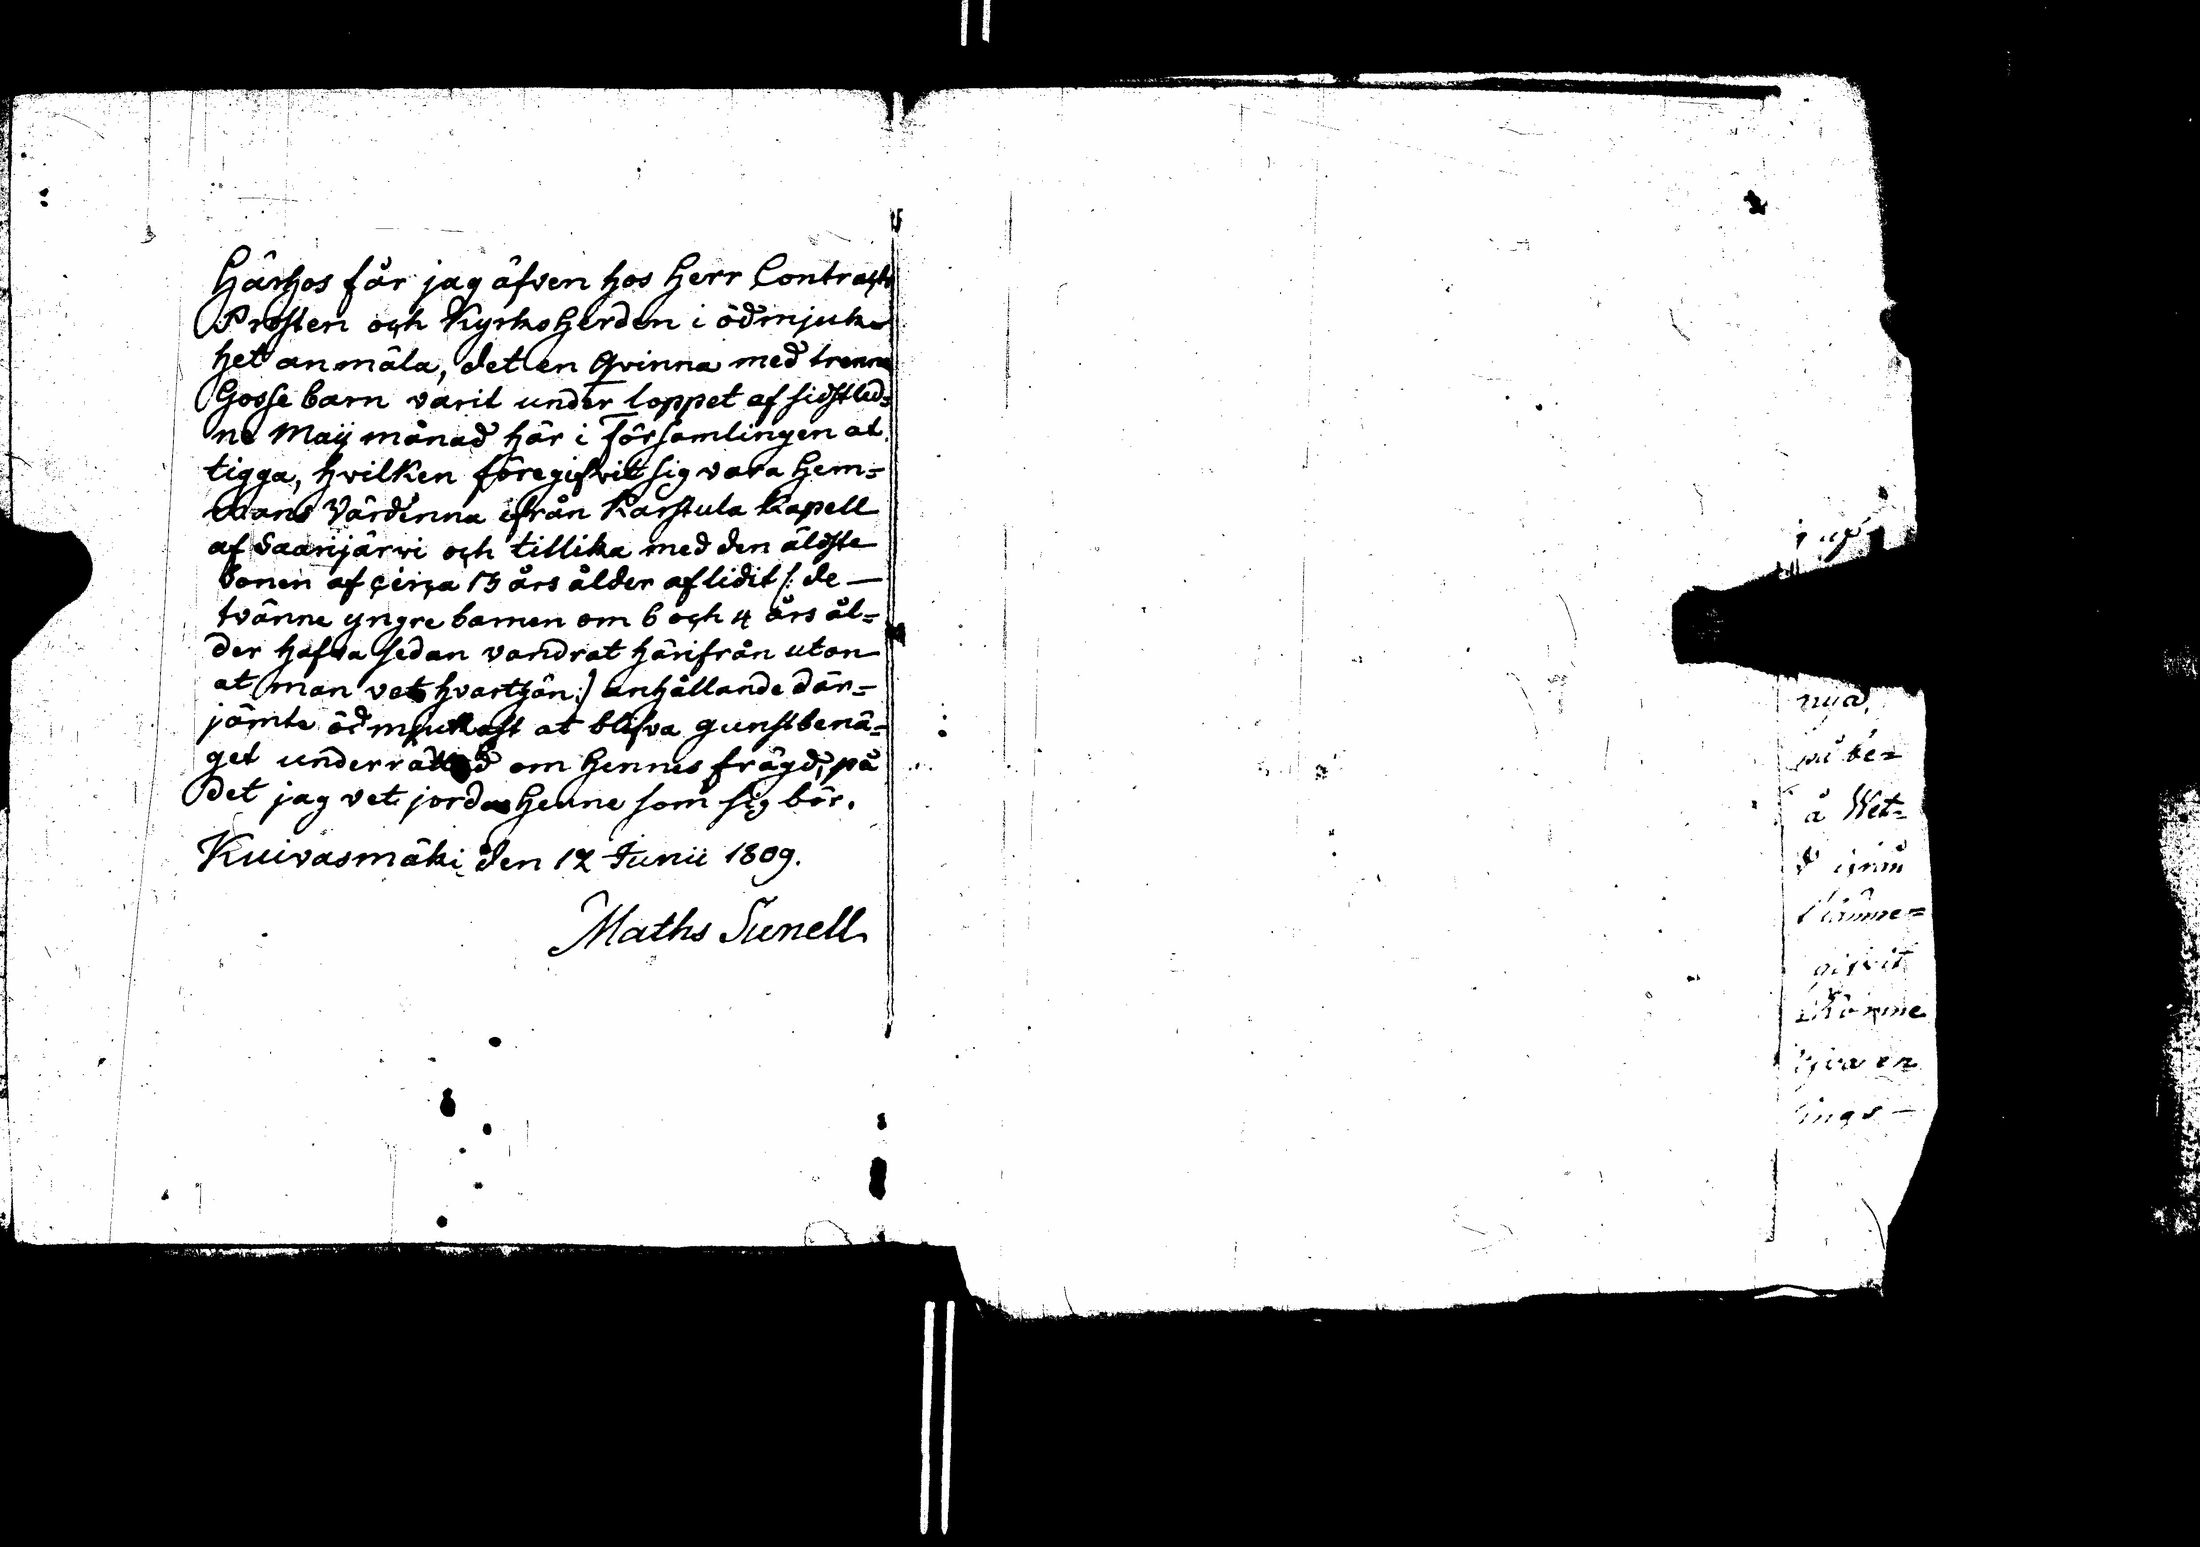 Härhos får jag äfven hos Herr Contracts
Prosten och KyrkoHerden i ödmjuk-
het anmäla, det en Qvinna med trenne
Gosse barn varit under loppet af sidstled=
ne Maij månad här i Församlingen at
tigga, hvilken föregifvit sig vara Hem=
mans Värdinna ifrån Karstula Kapell
af Saarijärvi och tillika med den äldste
Sonen af circa 13 års ålder aflidit /: de —
tvänne yngre barnen om 6 och 4 års ål=
der hafva sedan vandrat härifrån utan
at man vet hvarthän :/ anhållande där=
jämte ödmjukast at blifva gunstbenä=
get underrättad om Hennes frägd, på
det jag vet jorda Henne som sig bör.
Kuivasmäki den 12 Junii 1809.
Maths Sunell
nya,
på be=
å Wet=
gifvit
ings —